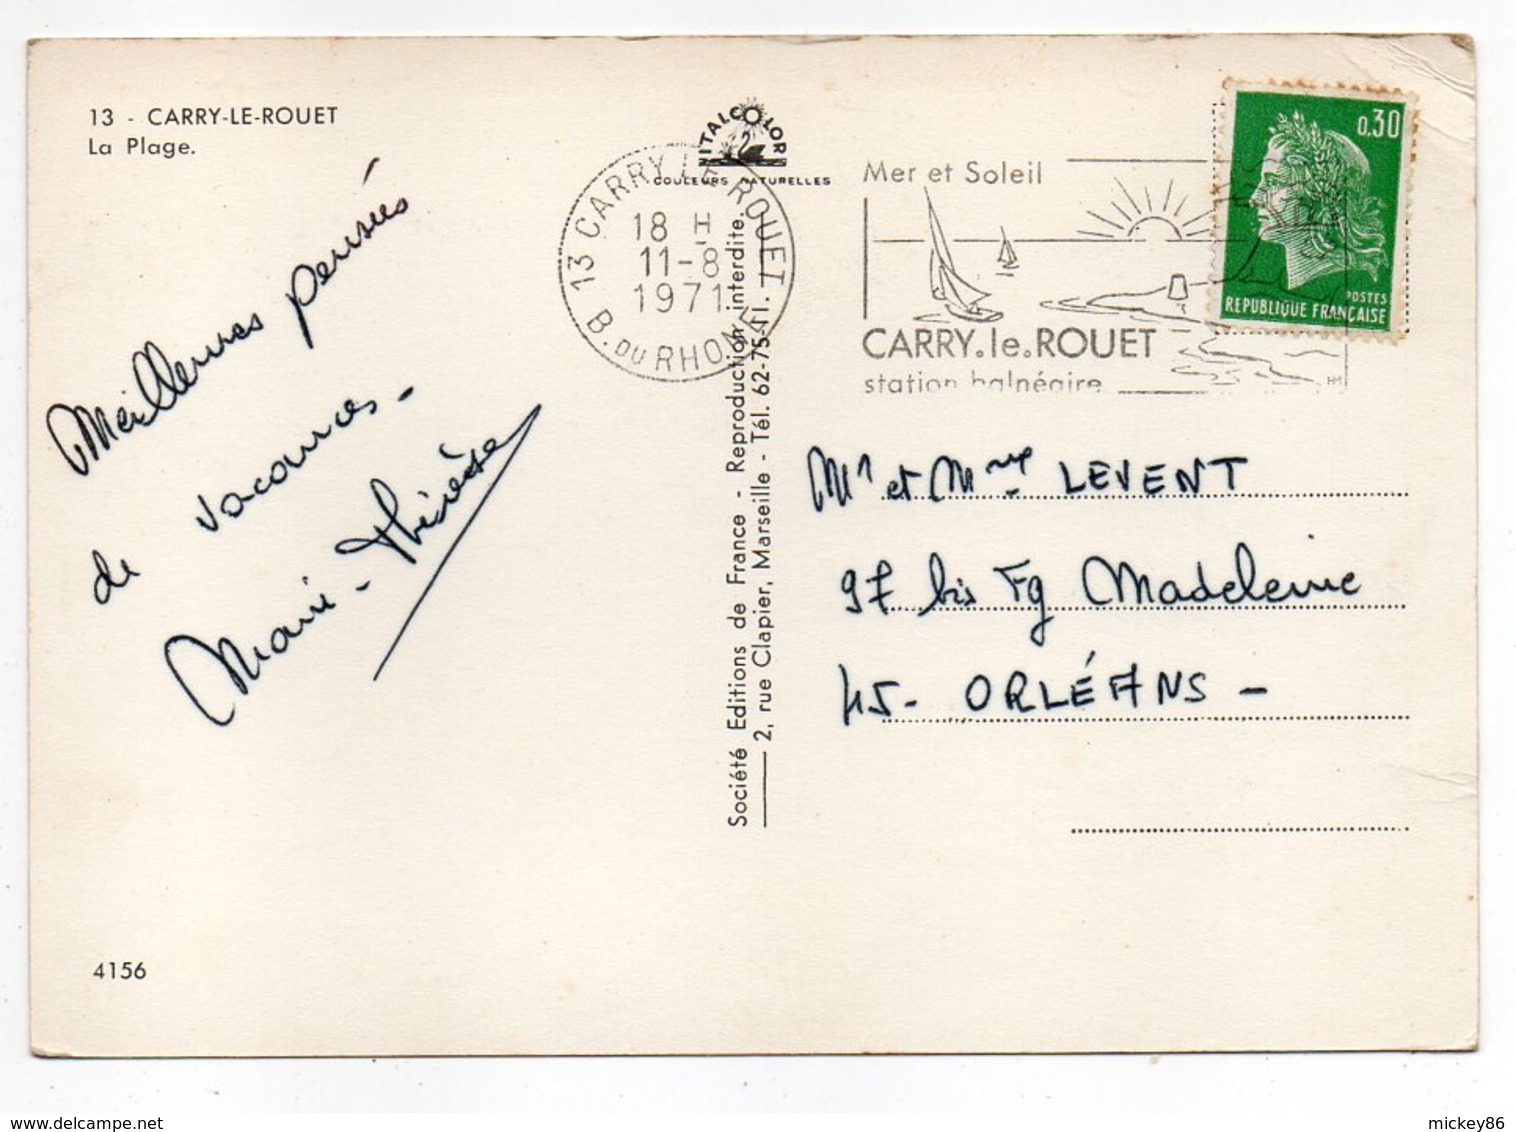 13 - CARRY-LE-ROUET
La Plage.
Meilleures pensées
de vacances -
Marie-Thérèse
4156
VITALCOLOR
COULEURS NATURELLES
13 CARRY LE ROUET
18 H
11-8
1971
B. DU RHONE
Société Editions de France - Reproduction interdite.
2, rue Clapier, Marseille - Tél. 62-75-11.
Mer et Soleil
CARRY.le.ROUET
station balnéaire
HM
0,30
POSTES
REPUBLIQUE FRANÇAISE
Mr et Mme LEVENT
97 bis Fg Madeleine
45- ORLÉANS -
delcampe.net
mickey86